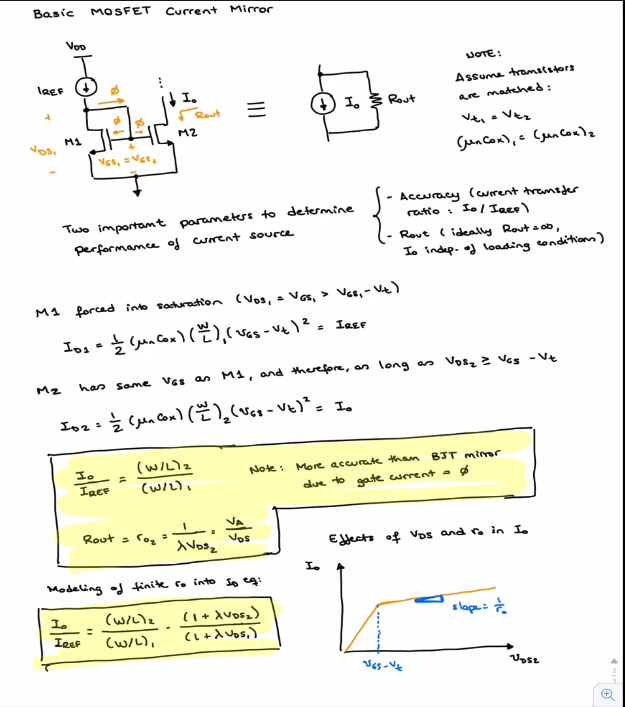 Basic MOSFET Current Mirror
VDD
IREF
ø
Io
Rout
+
ø ø
M1
M2
VDS1
+
VGS1 = VGS2
-
-
≡
Io
Rout
NOTE:
Assume transistors
are matched:
Vt1 = Vt2
(μnCox)1 = (μnCox)2
Two important parameters to determine
performance of current source
- Accuracy (current transfer
ratio: Io/IREF)
- Rout (ideally Rout = ∞,
Io indep. of loading conditions)
M1 forced into saturation (VDS1 = VGS1 > VGS1 - Vt)
ID1 = 1/2 (μnCox) (W/L)1 (VGS - Vt)² = IREF
M2 has same VGS as M1, and therefore, as long as VDS2 ≥ VGS - Vt
ID2 = 1/2 (μnCox) (W/L)2 (VGS - Vt)² = Io
Io/IREF = (W/L)2/(W/L)1
Note: More accurate than BJT mirror
due to gate current = ø
Rout = ro2 = 1/λVDS2 = VA/VDS
Effects of VDS and ro in Io
Modeling of finite ro into ID eq:
Io/IREF = (W/L)2/(W/L)1 · (1 + λVDS2)/(1 + λVDS1)
Io
slope = 1/ro
VGS - Vt
VDS2